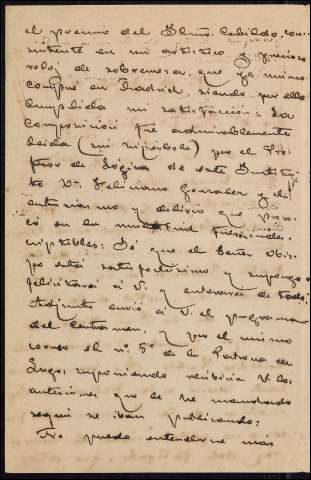 el premio del Ilmo. Cabildo, con-
sistente en un artístico y precioso
reloj de sobremesa, que yo mismo
compré en Madrid, siendo por ello
cumplida mi satisfacción: La
composición fué admirablemente
leida (mi hipérbole) por el Pro-
fesor de Lógica de este Institu-
to Dn. Feliciano González y el
entusiasmo y delirio que provo-
có en la multitud fueron indes-
criptibles: Sé que el Señor Obis-
po está satisfechísimo y supongo
felicitará á V. y enterará de todo:
Adjunto envió á V. el programa
del Certamen, y por el mismo
correo el nº 5º de la Patrona de
Lugo, suponiendo recibiria V. los
anteriores que le he mandado
segun se iban publicando:
No puedo extenderme más